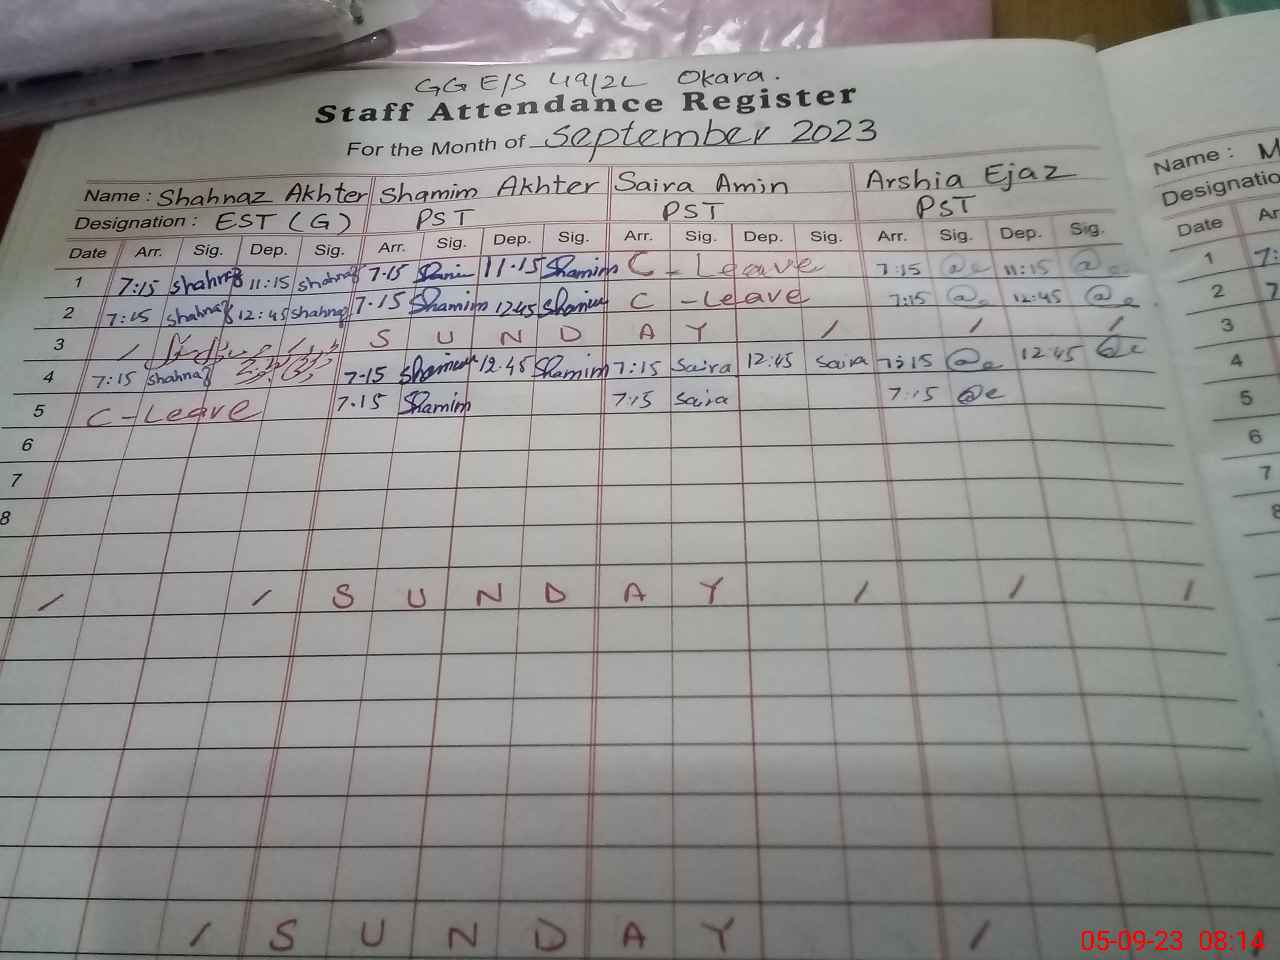 GGE/S 49/2L Okara.
Staff Attendance Register
For the Month of September 2023
Name : Shahnaz Akhter Shamim Akhter Saira Amin Arshia Ejaz Name : M
Designation : EST (G) PST PST PST Designatio
Date Arr. Sig. Dep. Sig. Arr. Sig. Dep. Sig. Arr. Sig. Dep. Sig. Arr. Sig. Dep. Sig. Date Ar
1 7:15 shahnaz 11:15 shahnaz 7.15 Shamim 11.15 Shamim C - Leave 7:15 11:15 1 7:
2 7:15 shahnaz 12:45 shahnaz 7.15 Shamim 12.45 Shamim C - Leave 7:15 12:45 2 7
3 / / S U N D A Y / / / 3
4 7:15 shahnaz 7.15 Shamim 12.45 Shamim 7:15 Saira 12:45 Saira 7:15 12:45 4
5 C - Leave 7.15 Shamim 7:15 Saira 7:15 5
6 6
7 7
8 8
/ / S U N D A Y / / /
/ S U N D A Y /
05-09-23 08:14